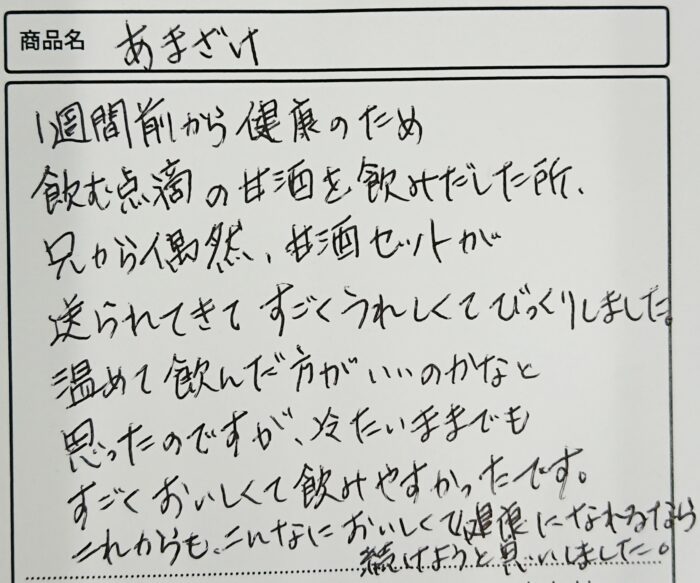 商品名 あまざけ
1週間前から健康のため
飲む点滴の甘酒を飲みだした所、
兄から偶然、甘酒セットが
送られてきてすごくうれしくてびっくりしました。
温めて飲んだ方がいいのかなと
思ったのですが、冷たいままでも
すごくおいしくて飲みやすかったです。
これからも、こんなにおいしくて健康になれるなら
続けようと思いしました。